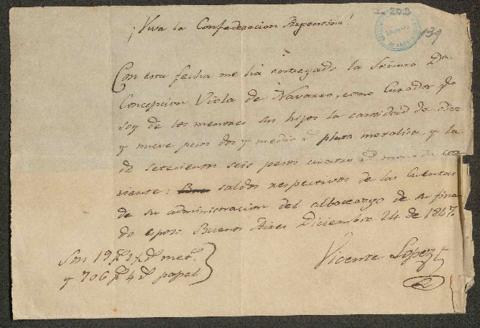 ¡Viva la Confederacion Argentina!
139
Con esta fecha me ha entregado la Señora Dª
Concepcion Viola de Navarro, como Curador qe
soy de los menores sus hijos la cantidad de diez
y nueve pesos dos y medio rs plata metalica, y la
de setecientos seis pesos cuatro rs moneda cor
riente: saldos respectivos de las Cuentas
de su administracion del albaceazgo de su fina
do esposo. Buenos Aires Diciembre 24 de 1847.
Son 19 ps 2½ rs met.
y 706 ps 4 rs papel
Vicente Lopez